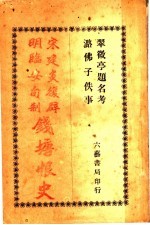 翠微亭題名考
潞佛子佚事
宋建炎復辟
明臨安旬制
錢塘恨史
六藝書局印行